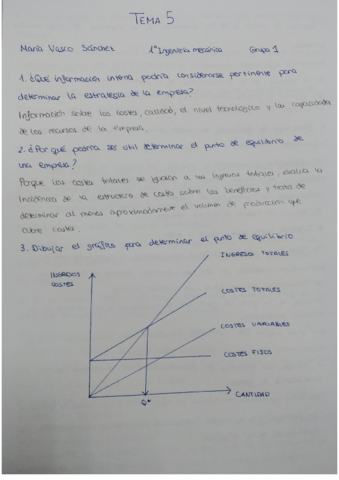 TEMA 5
María Vasco Sánchez 1º Ingeniería mecánica Grupo 1
1. ¿Qué información interna podría considerarse pertinente para
determinar la estrategia de la empresa?
Información sobre los costes, calidad, el nivel tecnológico y las capacidades
de los recursos de la empresa.
2. ¿Por qué podría ser útil determinar el punto de equilibrio de
una empresa?
Porque los costes totales se igualan a los ingresos totales, evalúa la
incidencia de la estructura de costes sobre los beneficios y trata de
determinar al menos aproximadamente el volumen de producción que
cubre costes.
3. Dibujar el gráfico para determinar el punto de equilibrio
INGRESOS TOTALES
INGRESOS
COSTES
COSTES TOTALES
COSTES VARIABLES
COSTES FIJOS
CANTIDAD
Q*